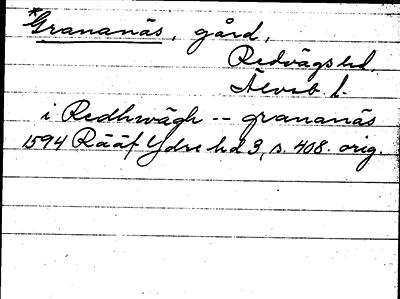 *Grananäs, gård,
Redvägs hd,
Älvsb l.
i Redhwägh -- grananäs
1594 Rääf Ydre hd 3, s. 408. orig.